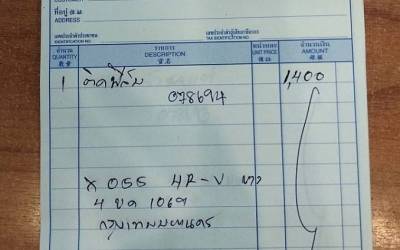 CUSTOMER
ที่อยู่
ADDRESS
เลขประจำตัวประชาชน เลขประจำตัวผู้เสียภาษีอากร
IDENTIFICATION NO. TAX IDENTIFICATION NO.
จำนวน รายการ หน่วยละ จำนวนเงิน
QUANTITY DESCRIPTION UNIT PRICE AMOUNT
數量 貨名
1 ติดฟิล์ม 1,400
078694
4 ขด 1069
กรุงเทพมหานคร